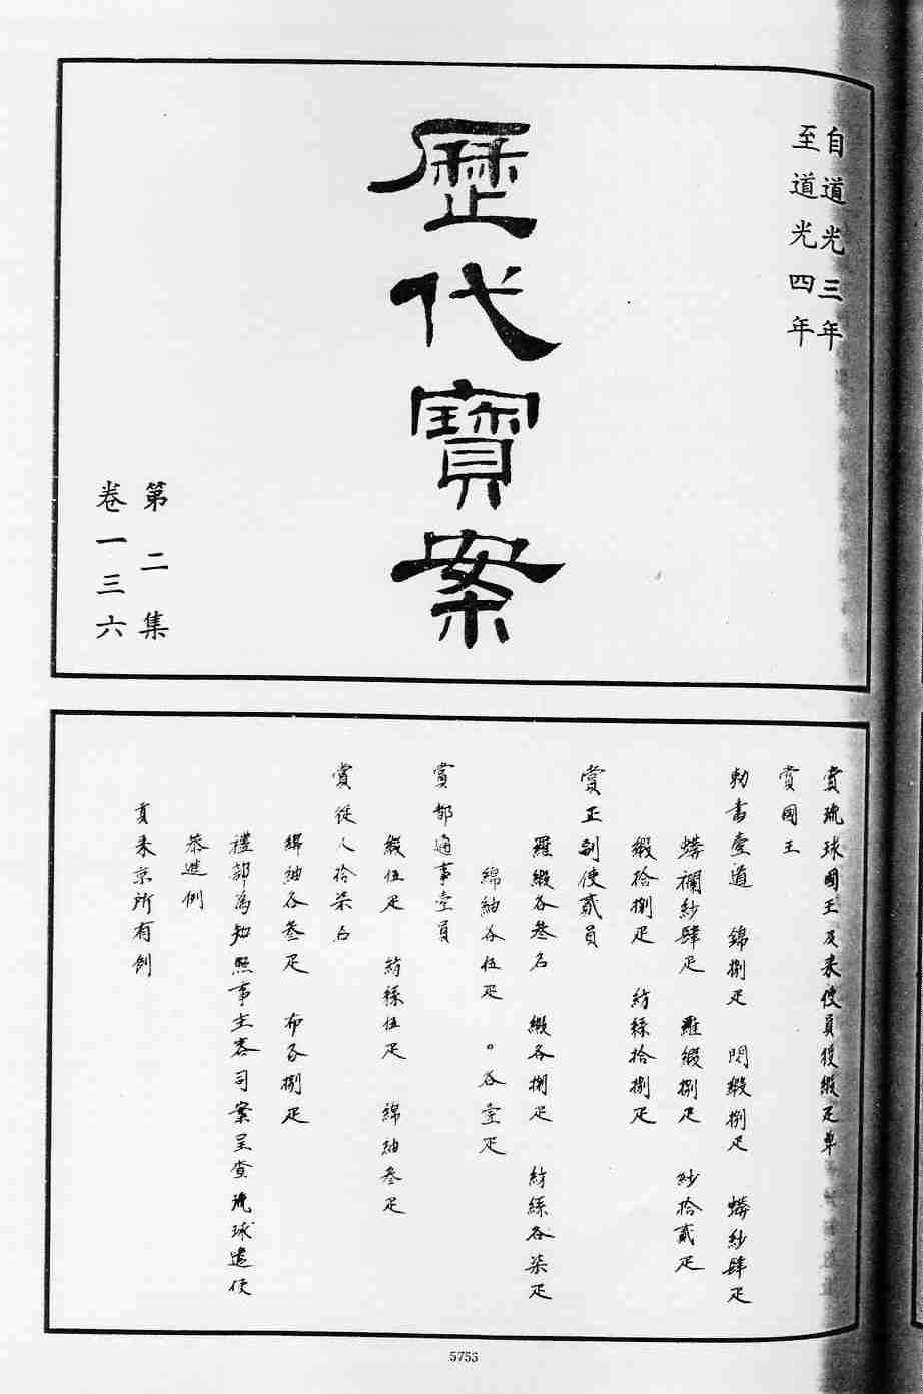 自道光三年
至道光四年
歷代寶案
第二集
卷一三六
賞琉球國王及來使員役緞疋單
賞國王
勅書壹道 錦捌疋 閃緞捌疋 蟒紗肆疋
蟒襴紗肆疋 羅緞捌疋 紗拾貳疋
緞拾捌疋 紡絲拾捌疋
賞正副使貳員
羅緞各叁名 緞各捌疋 紡絲各柒疋
綿紬各伍疋 。各壹疋
賞都通事壹員
緞伍疋 紡絲伍疋 綿紬叁疋
賞從人拾柒名
綿紬各叁疋 布各捌疋
禮部為知照事主客司案呈查琉球遣使
恭進例
貢來京所有例
5753